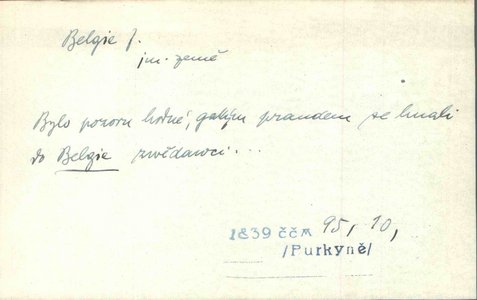 Belgie f.
jm. země
Bylo pozoru hodné, gakým praudem se hnali
do Belgie zwědawci...
1839 ččm 95, 10,
/Purkyně/